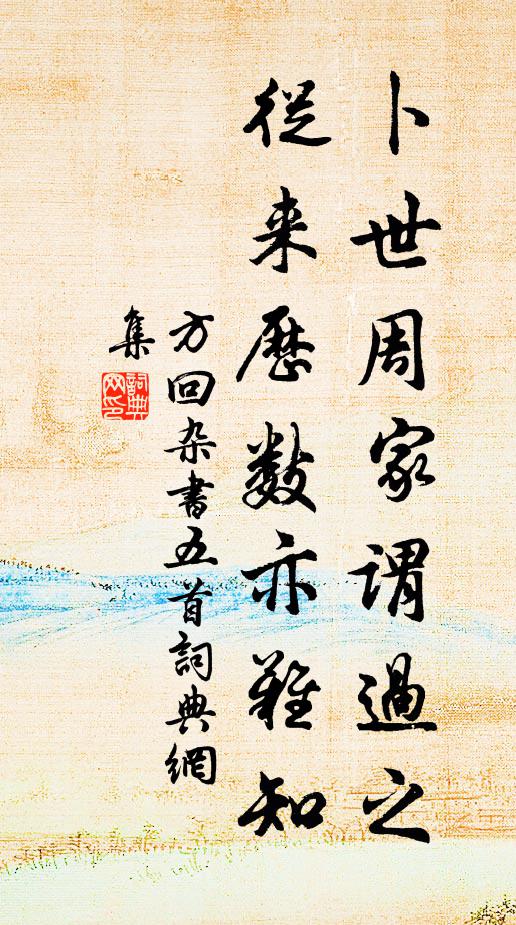 卜世周家谓過之
从来歷數亦難知
方回杂書五首詞典網
集
詞典
网印